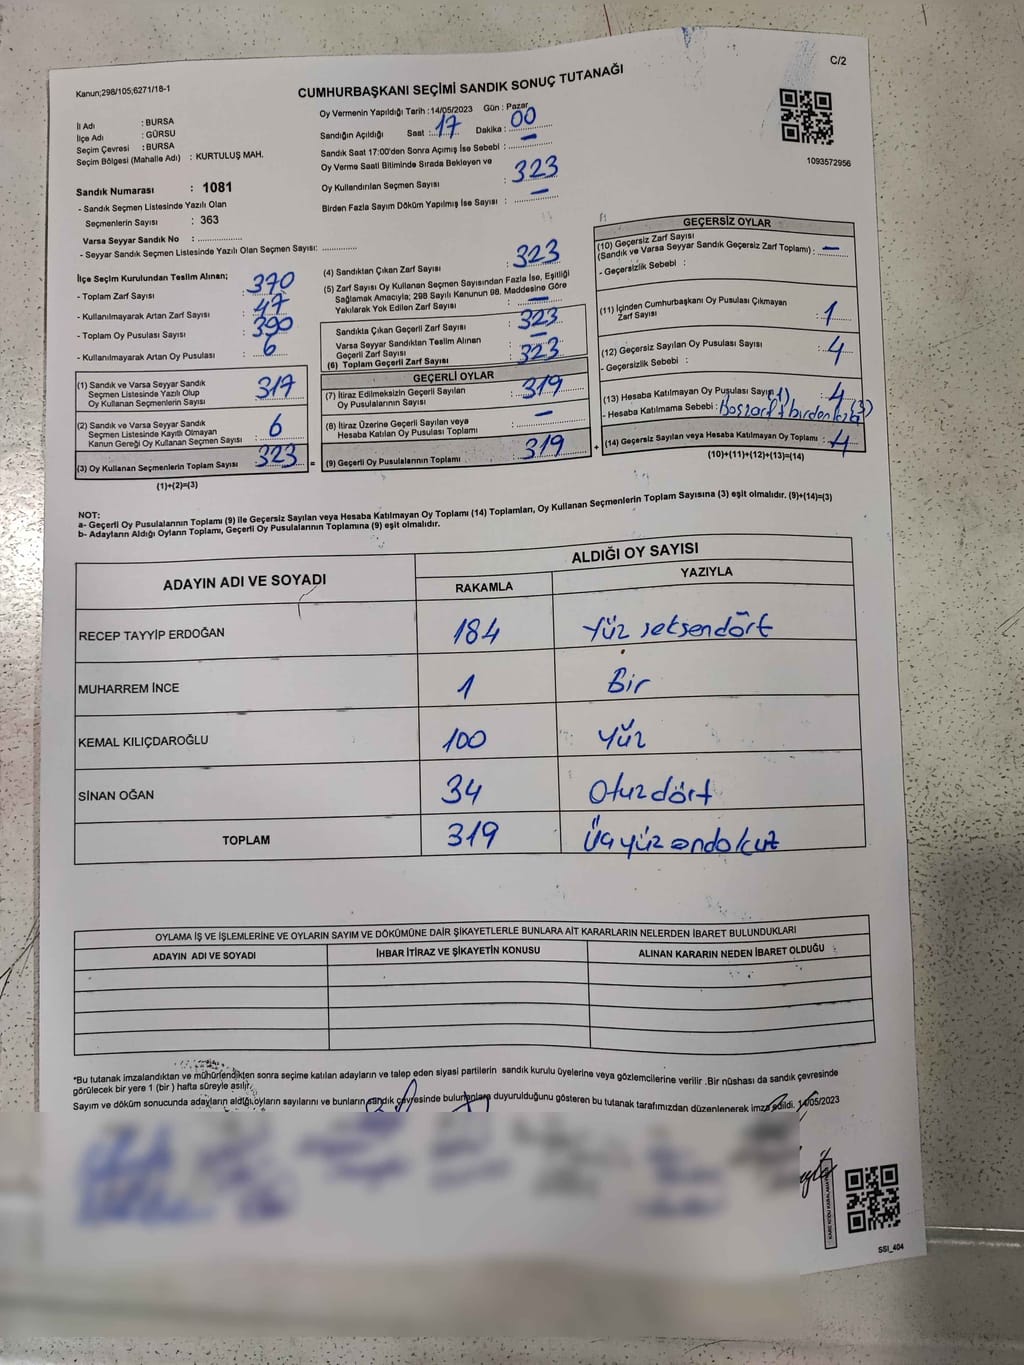 C/2
Kanun;298/105;6271/18-1
CUMHURBAŞKANI SEÇİMİ SANDIK SONUÇ TUTANAĞI
İl Adı : BURSA
İlçe Adı : GÜRSU
Seçim Çevresi : BURSA
Seçim Bölgesi (Mahalle Adı) : KURTULUŞ MAH.
Sandık Numarası : 1081
- Sandık Seçmen Listesinde Yazılı Olan
Seçmenlerin Sayısı : 363
Varsa Seyyar Sandık No : ..................
- Seyyar Sandık Seçmen Listesinde Yazılı Olan Seçmen Sayısı: .............
Oy Vermenin Yapıldığı Tarih :14/05/2023 Gün : Pazar
Sandığın Açıldığı Saat : 17 Dakika : 00
Sandık Saat 17:00'den Sonra Açımış İse Sebebi : —
Oy Verme Saati Bitiminde Sırada Bekleyen ve
Oy Kullandırılan Seçmen Sayısı : 323
Birden Fazla Sayım Döküm Yapılmış İse Sayısı : —
1093572956
İlçe Seçim Kurulundan Teslim Alınan;
- Toplam Zarf Sayısı : 370
- Kullanılmayarak Artan Zarf Sayısı : 47
- Toplam Oy Pusulası Sayısı : 390
- Kullanılmayarak Artan Oy Pusulası : 6
(1) Sandık ve Varsa Seyyar Sandık
Seçmen Listesinde Yazılı Olup
Oy Kullanan Seçmenlerin Sayısı : 317
(2) Sandık ve Varsa Seyyar Sandık
Seçmen Listesinde Kayıtlı Olmayan
Kanun Gereği Oy Kullanan Seçmen Sayısı : 6
(3) Oy Kullanan Seçmenlerin Toplam Sayısı 323 =
(1)+(2)=(3)
(4) Sandıktan Çıkan Zarf Sayısı : 323
(5) Zarf Sayısı Oy Kullanan Seçmen Sayısından Fazla İse, Eşitliği
Sağlamak Amacıyla; 298 Sayılı Kanunun 98. Maddesine Göre
Yakılarak Yok Edilen Zarf Sayısı : —
Sandıkla Çıkan Geçerli Zarf Sayısı : 323
Varsa Seyyar Sandıktan Teslim Alınan
Geçerli Zarf Sayısı : —
(6) Toplam Geçerli Zarf Sayısı : 323
GEÇERLİ OYLAR
(7) İtiraz Edilmeksizin Geçerli Sayılan
Oy Pusulalarının Sayısı : 319
(8) İtiraz Üzerine Geçerli Sayılan veya
Hesaba Katılan Oy Pusulası Toplamı : —
(9) Geçerli Oy Pusulalarının Toplamı : 319 +
GEÇERSİZ OYLAR
(10) Geçersiz Zarf Sayısı
(Sandık ve Varsa Seyyar Sandık Geçersiz Zarf Toplamı) : —
- Geçersizlik Sebebi :
(11) İçinden Cumhurbaşkanı Oy Pusulası Çıkmayan
Zarf Sayısı : 1
(12) Geçersiz Sayılan Oy Pusulası Sayısı : 4
- Geçersizlik Sebebi :
(13) Hesaba Katılmayan Oy Pusulası Sayısı 4
- Hesaba Katılmama Sebebi : Boş zarf + birden fazla (3)
(14) Geçersiz Sayılan veya Hesaba Katılmayan Oy Toplamı : 4
(10)+(11)+(12)+(13)=(14)
NOT:
a- Geçerli Oy Pusulalarının Toplamı (9) ile Geçersiz Sayılan veya Hesaba Katılmayan Oy Toplamı (14) Toplamları, Oy Kullanan Seçmenlerin Toplam Sayısına (3) eşit olmalıdır. (9)+(14)=(3)
b- Adayların Aldığı Oyların Toplamı, Geçerli Oy Pusulalarının Toplamına (9) eşit olmalıdır.
ADAYIN ADI VE SOYADI ALDIĞI OY SAYISI
RAKAMLA YAZIYLA
RECEP TAYYİP ERDOĞAN 184 Yüz seksendört
MUHARREM İNCE 1 Bir
KEMAL KILIÇDAROĞLU 100 Yüz
SİNAN OĞAN 34 Otuzdört
TOPLAM 319 Üçyüzondokuz
OYLAMA İŞ VE İŞLEMLERİNE VE OYLARIN SAYIM VE DÖKÜMÜNE DAİR ŞİKAYETLERLE BUNLARA AİT KARARLARIN NELERDEN İBARET BULUNDUKLARI
ADAYIN ADI VE SOYADI İHBAR İTİRAZ VE ŞİKAYETİN KONUSU ALINAN KARARIN NEDEN İBARET OLDUĞU
*Bu tutanak imzalandıktan ve mühürlendikten sonra seçime katılan adayların ve talep eden siyasi partilerin sandık kurulu üyelerine veya gözlemcilerine verilir .Bir nüshası da sandık çevresinde
görülecek bir yere 1 (bir ) hafta süreyle asılır.
Sayım ve döküm sonucunda adayların aldığı,oyların sayılarını ve bunların sandık çevresinde bulunanlara duyurulduğunu gösteren bu tutanak tarafımızdan düzenlenerek imza edildi. 14/05/2023
KARE KODU KARALAMAYIN
SSİ_404